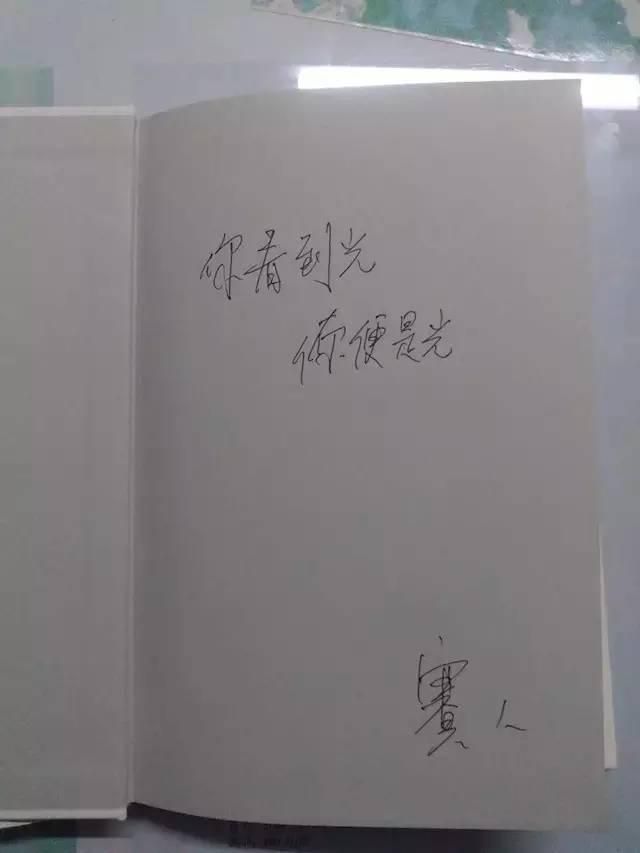 你看到光
你便是光
赛人